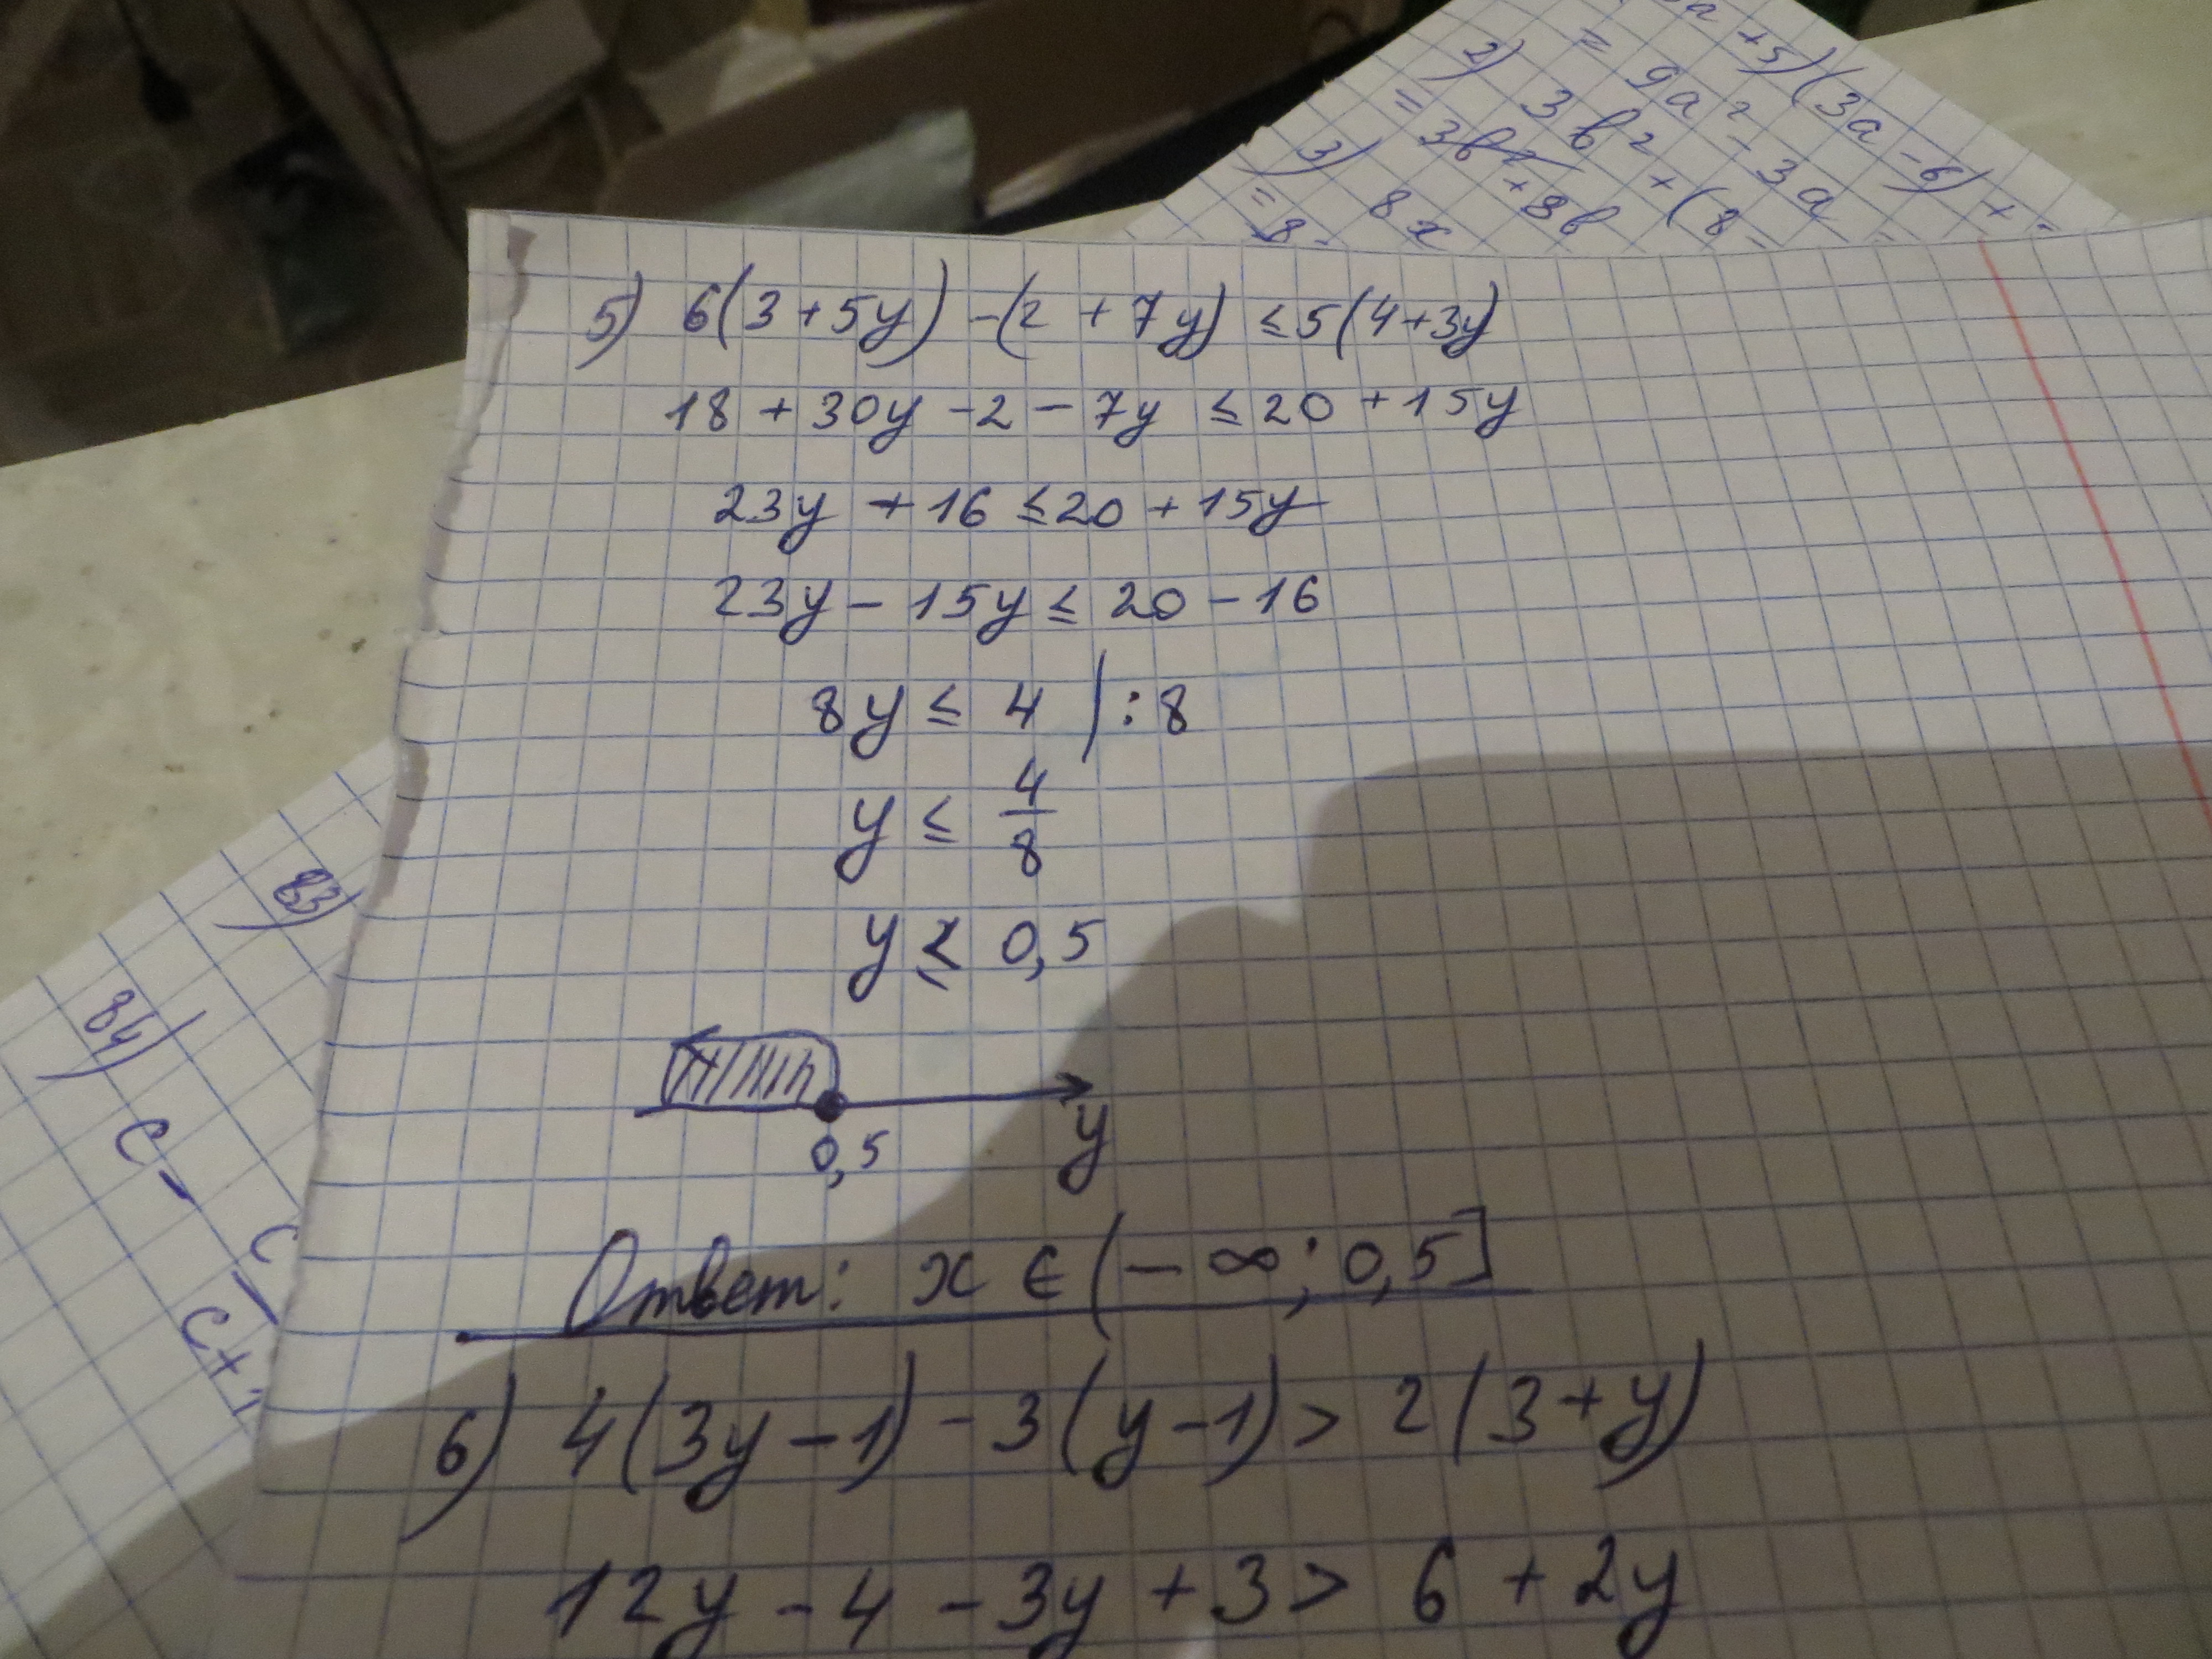 а + 5)(3а - 6) +
= 9а² - 3а
2) 3в² + (8 -
= 3в² + 8в
3) 8х
= 8
5) 6(3 + 5y) - (2 + 7y) ≤ 5(4 + 3y)
18 + 30y - 2 - 7y ≤ 20 + 15y
23y + 16 ≤ 20 + 15y
23y - 15y ≤ 20 - 16
8y ≤ 4 | : 8
y ≤ 4/8
y ≤ 0,5
0,5
y
Ответ: x ∈ (-∞; 0,5]
6) 4(3y - 1) - 3(y - 1) > 2(3 + y)
12y - 4 - 3y + 3 > 6 + 2y
83)
84)
c -
c
c +